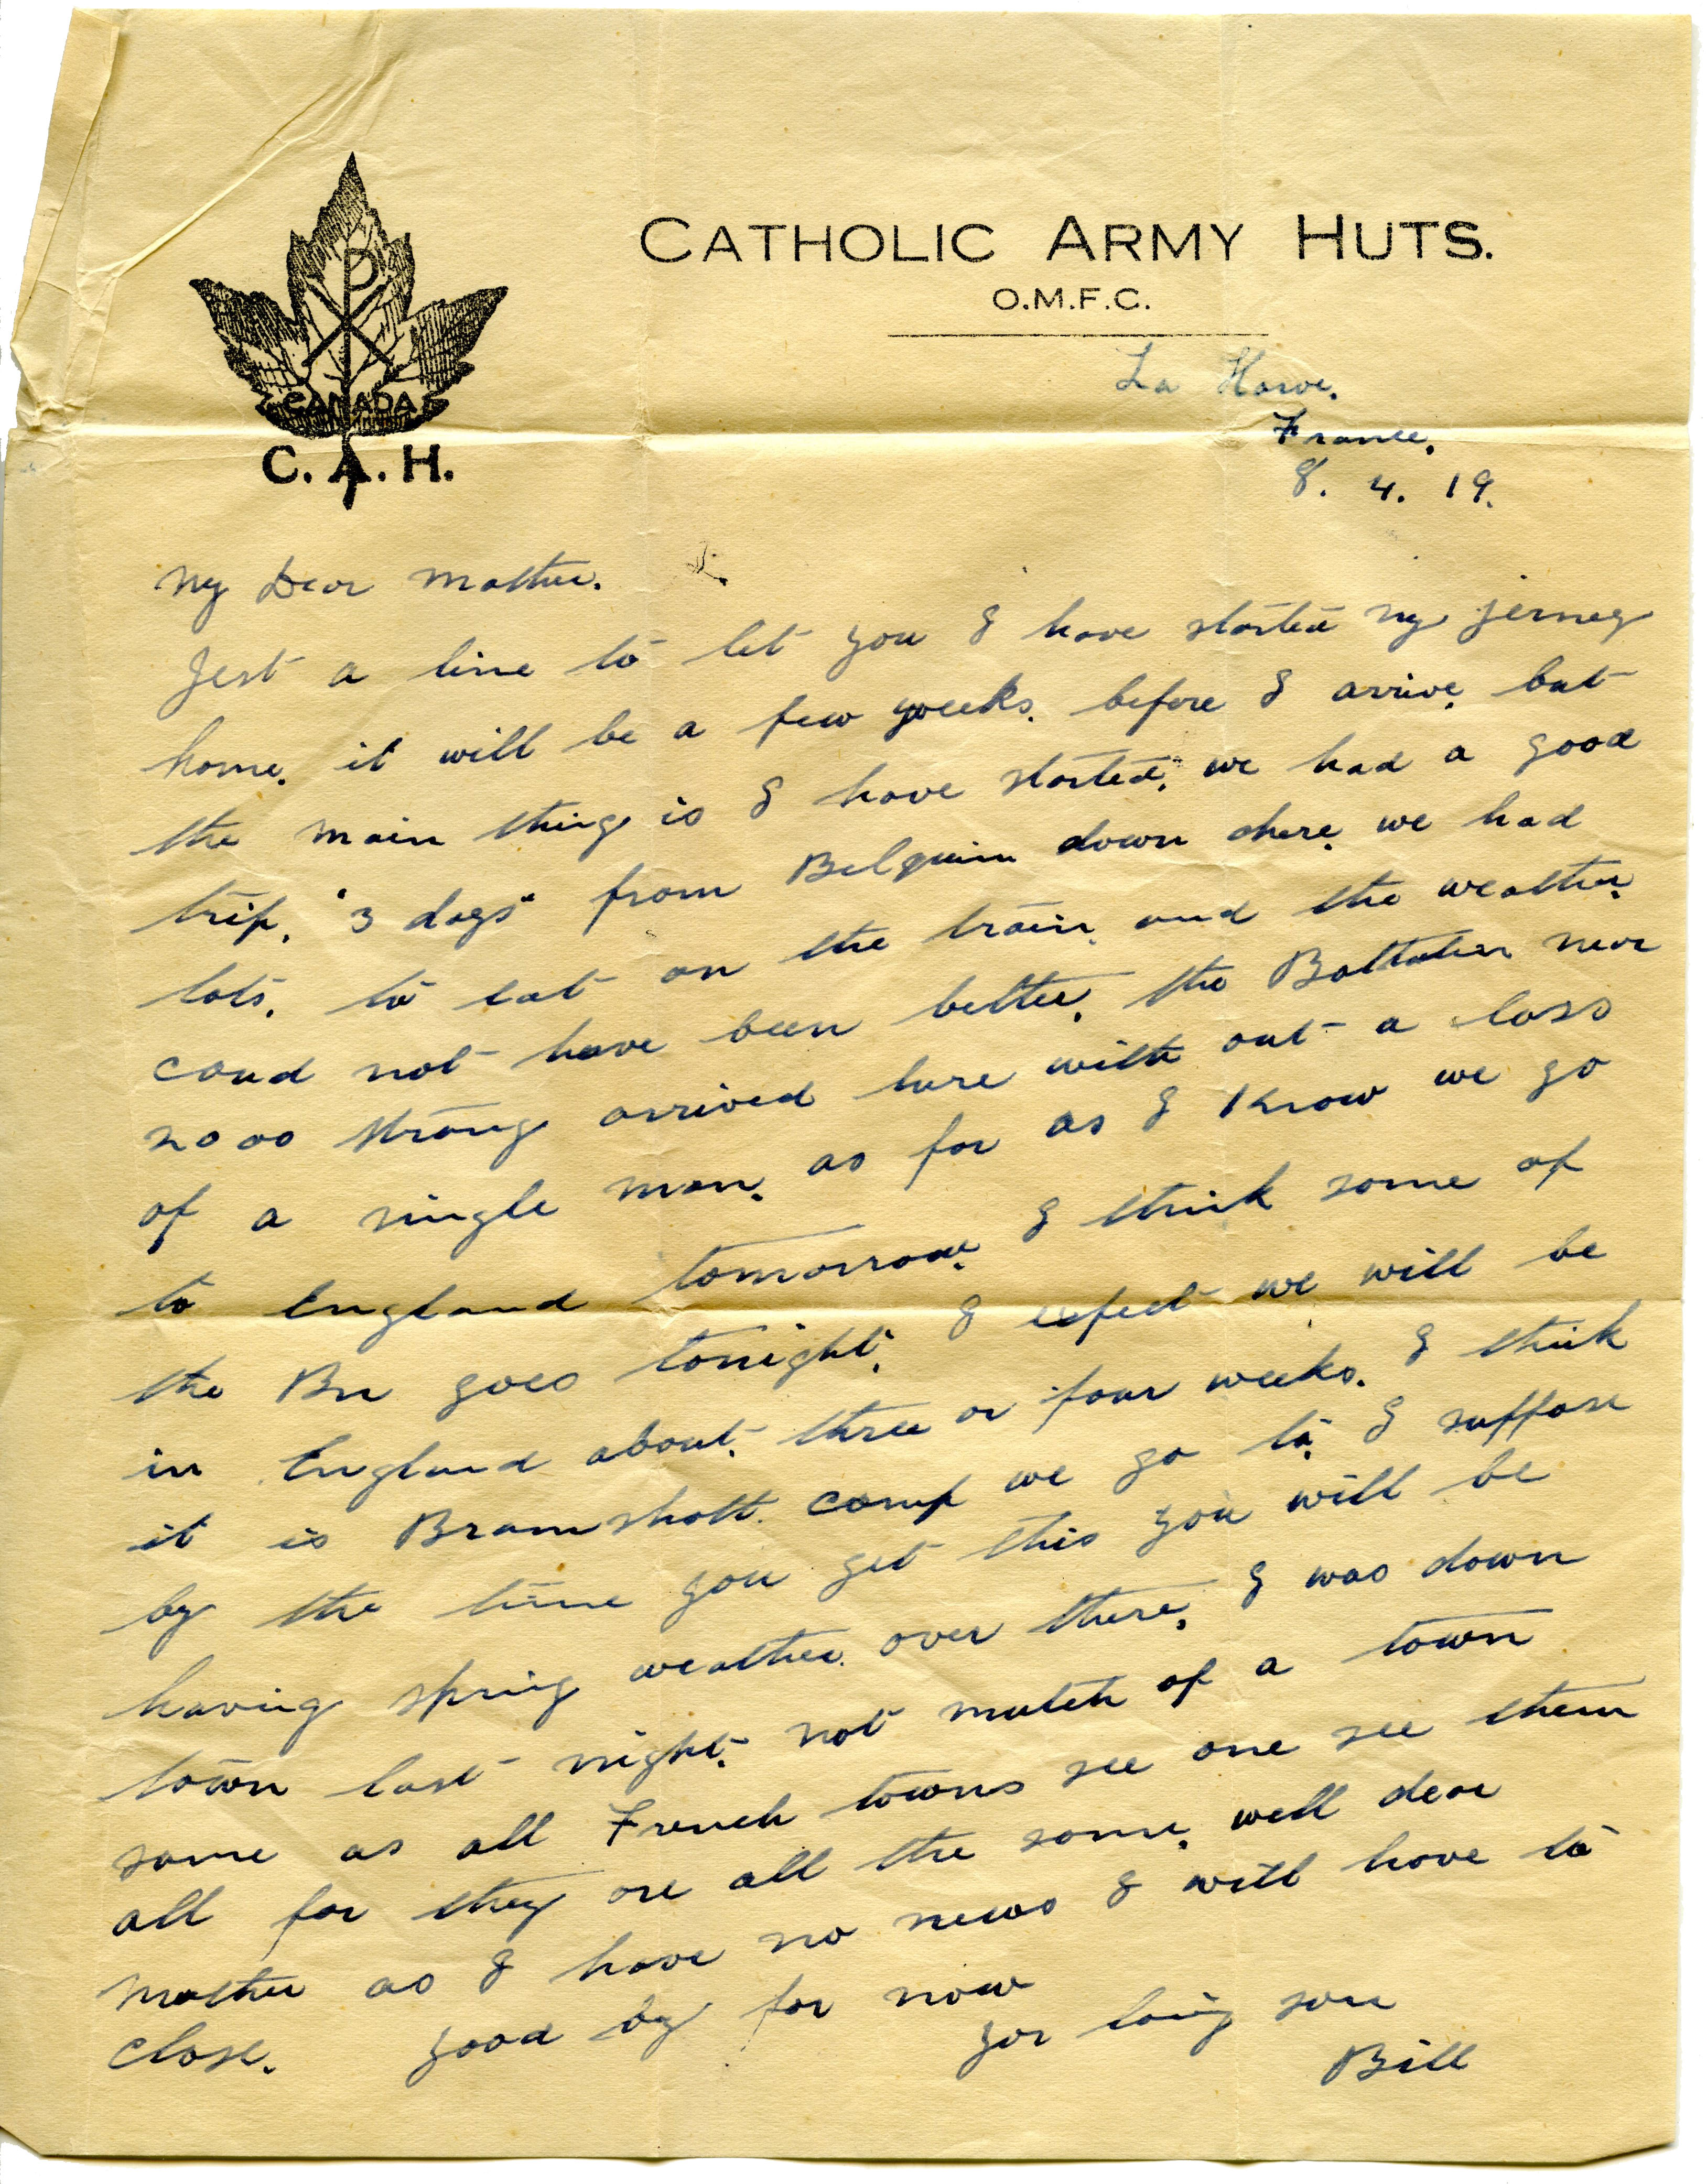 CATHOLIC ARMY HUTS.
O.M.F.C.
CANADA
C. A. H.
La Harve.
France.
8. 4. 19.
My Dear Mother.
Jest a line to let you I have started my jerney
home. it will be a few weeks. before I arrive. but
the main thing is I have started. we had a good
trip. "3 days" from Belguim down here. we had
lots. to eat on the train. and the weather.
coud not have been better. the Battalion near
2000 strong arrived here with out a loss
of a single man. as far as I know we go
to England tomorrow. I think some of
the Bn goes tonight. I expect we will be
in England about. three or four weeks. I think
it is Bramshott. Camp we go to. I suppose
by the time you get this you will be
having spring weather. over there. I was down
town last night. not mutch of a town
same as all French towns see one see them
all for they are all the same. well dear
mother as I have no news I will have to
close. good by for now
yor loving son
Bill